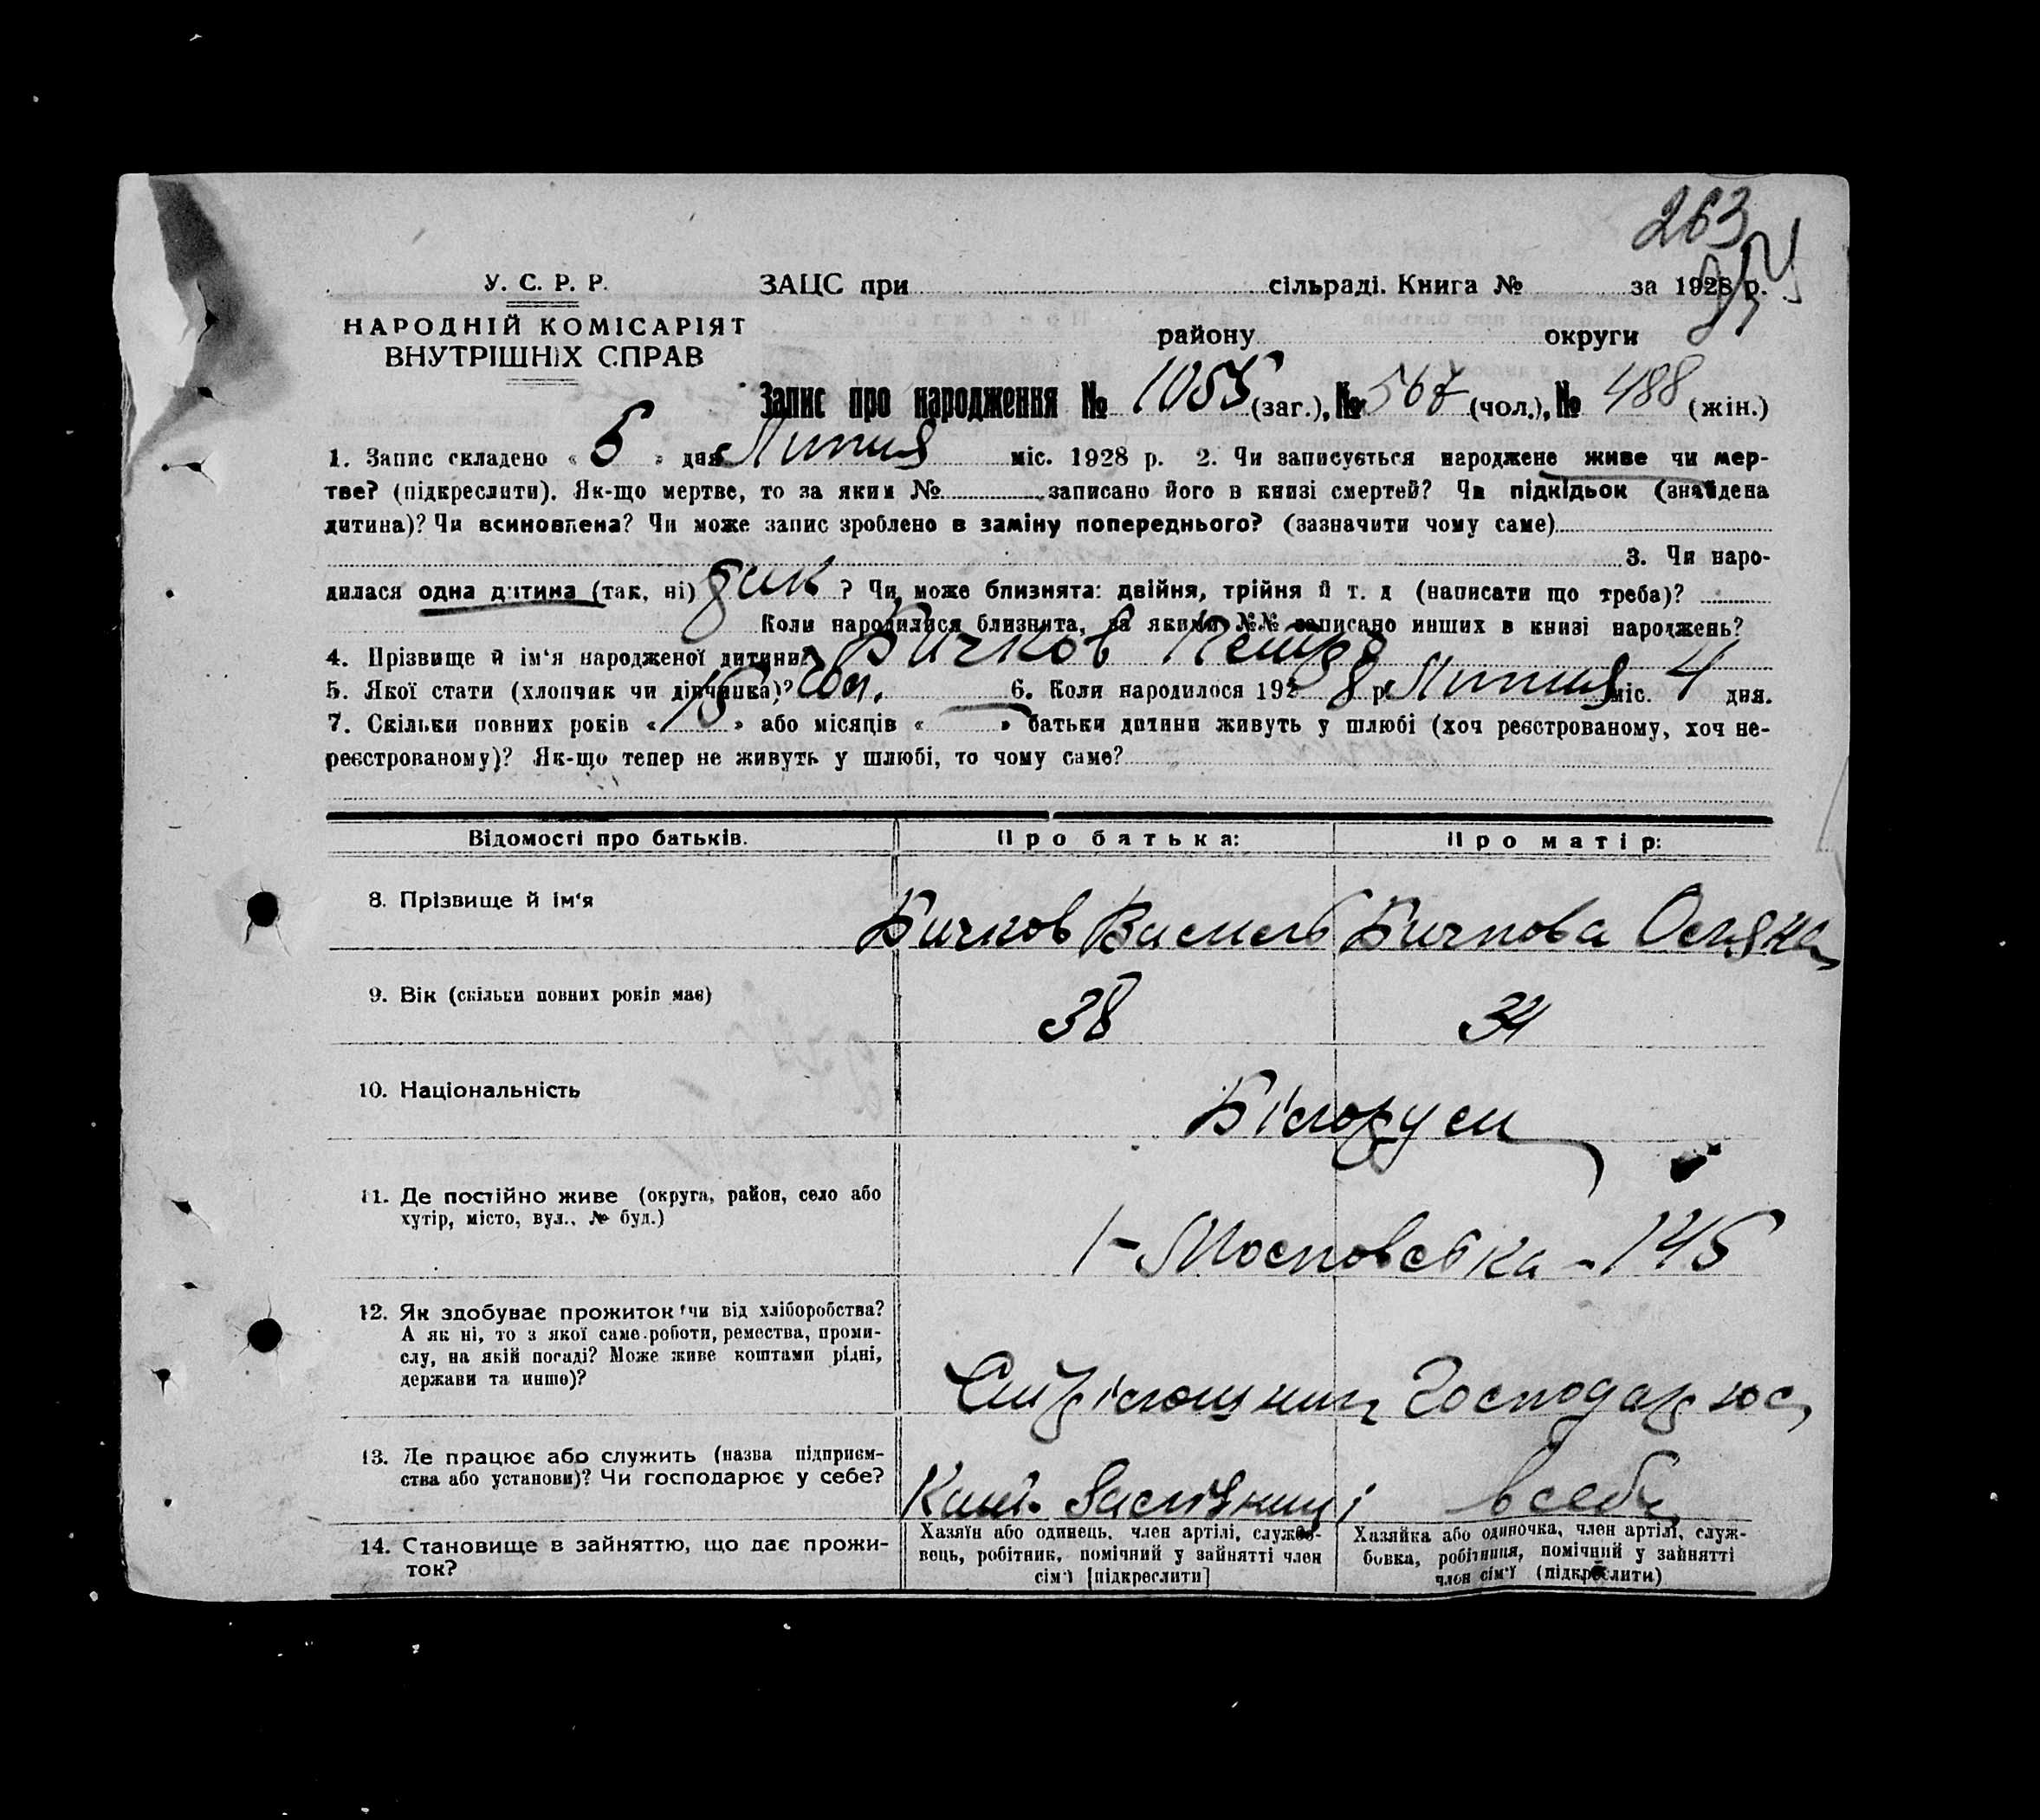 263
У. С. Р. Р.
ЗАЦС при сільраді. Книга № за 1928 р.
НАРОДНІЙ КОМІСАРІЯТ
ВНУТРІШНІХ СПРАВ
району округи
Запис про народження № 1055 (заг.), № 567 (чол.), № 488 (жін.)
1. Запис складено « 5 » дня Липня міс. 1928 р. 2. Чи записується народжене живе чи мер-
тве? (підкреслити). Як-що мертве, то за яким № записано його в книзі смертей? Чи підкідьок (знайдена
дитина)? Чи всиновлена? Чи може запис зроблено в заміну попереднього? (зазначити чому саме)
3. Чи наро-
дилася одна дитина (так, ні) так ? Чи може близнята: двійня, трійня й т. д (написати що треба)?
Коли народилися близнята, за якими №№ записано инших в книзі народжень?
4. Прізвище й ім‘я народженої дитини? Бичков Петро
5. Якої стати (хлопчик чи дівчинка)? чол. 6. Коли народилося 1928 р Липня міс. 4 дня.
7. Скільки повних років « 15 » або місяців « — » батьки дитини живуть у шлюбі (хоч реєстрованому, хоч не-
реєстрованому)? Як-що тепер не живуть у шлюбі, то чому саме?
Відомості про батьків. Про батька: Про матір:
8. Прізвище й ім‘я Бичков Василь Бичкова
9. Вік (скільки повних років має) 38 34
10. Національність Білоруси
11. Де постійно живе (округа, район, село або
хутір, місто, вул., № буд.) 1-Московська - 145
12. Як здобуває прожиток чи від хліборобства?
А як ні, то з якої саме роботи, ремества, проми-
слу, на якій посаді? Може живе коштами рідні,
держави та инше)? Стрілошник Господарює
13. Де працює або служить (назва підприєм-
ства або установи)? Чи господарює у себе? в себе
14. Становище в зайняттю, що дає прожи-
ток?
Хазяїн або одинець, член артілі, службо-
вець, робітник, помічний у зайнятті член
сім‘ї [підкреслити]
Хазяйка або одиночка, член артілі, служ-
бовка, робітниця, помічний у зайнятті
член сім‘ї (підкреслити)